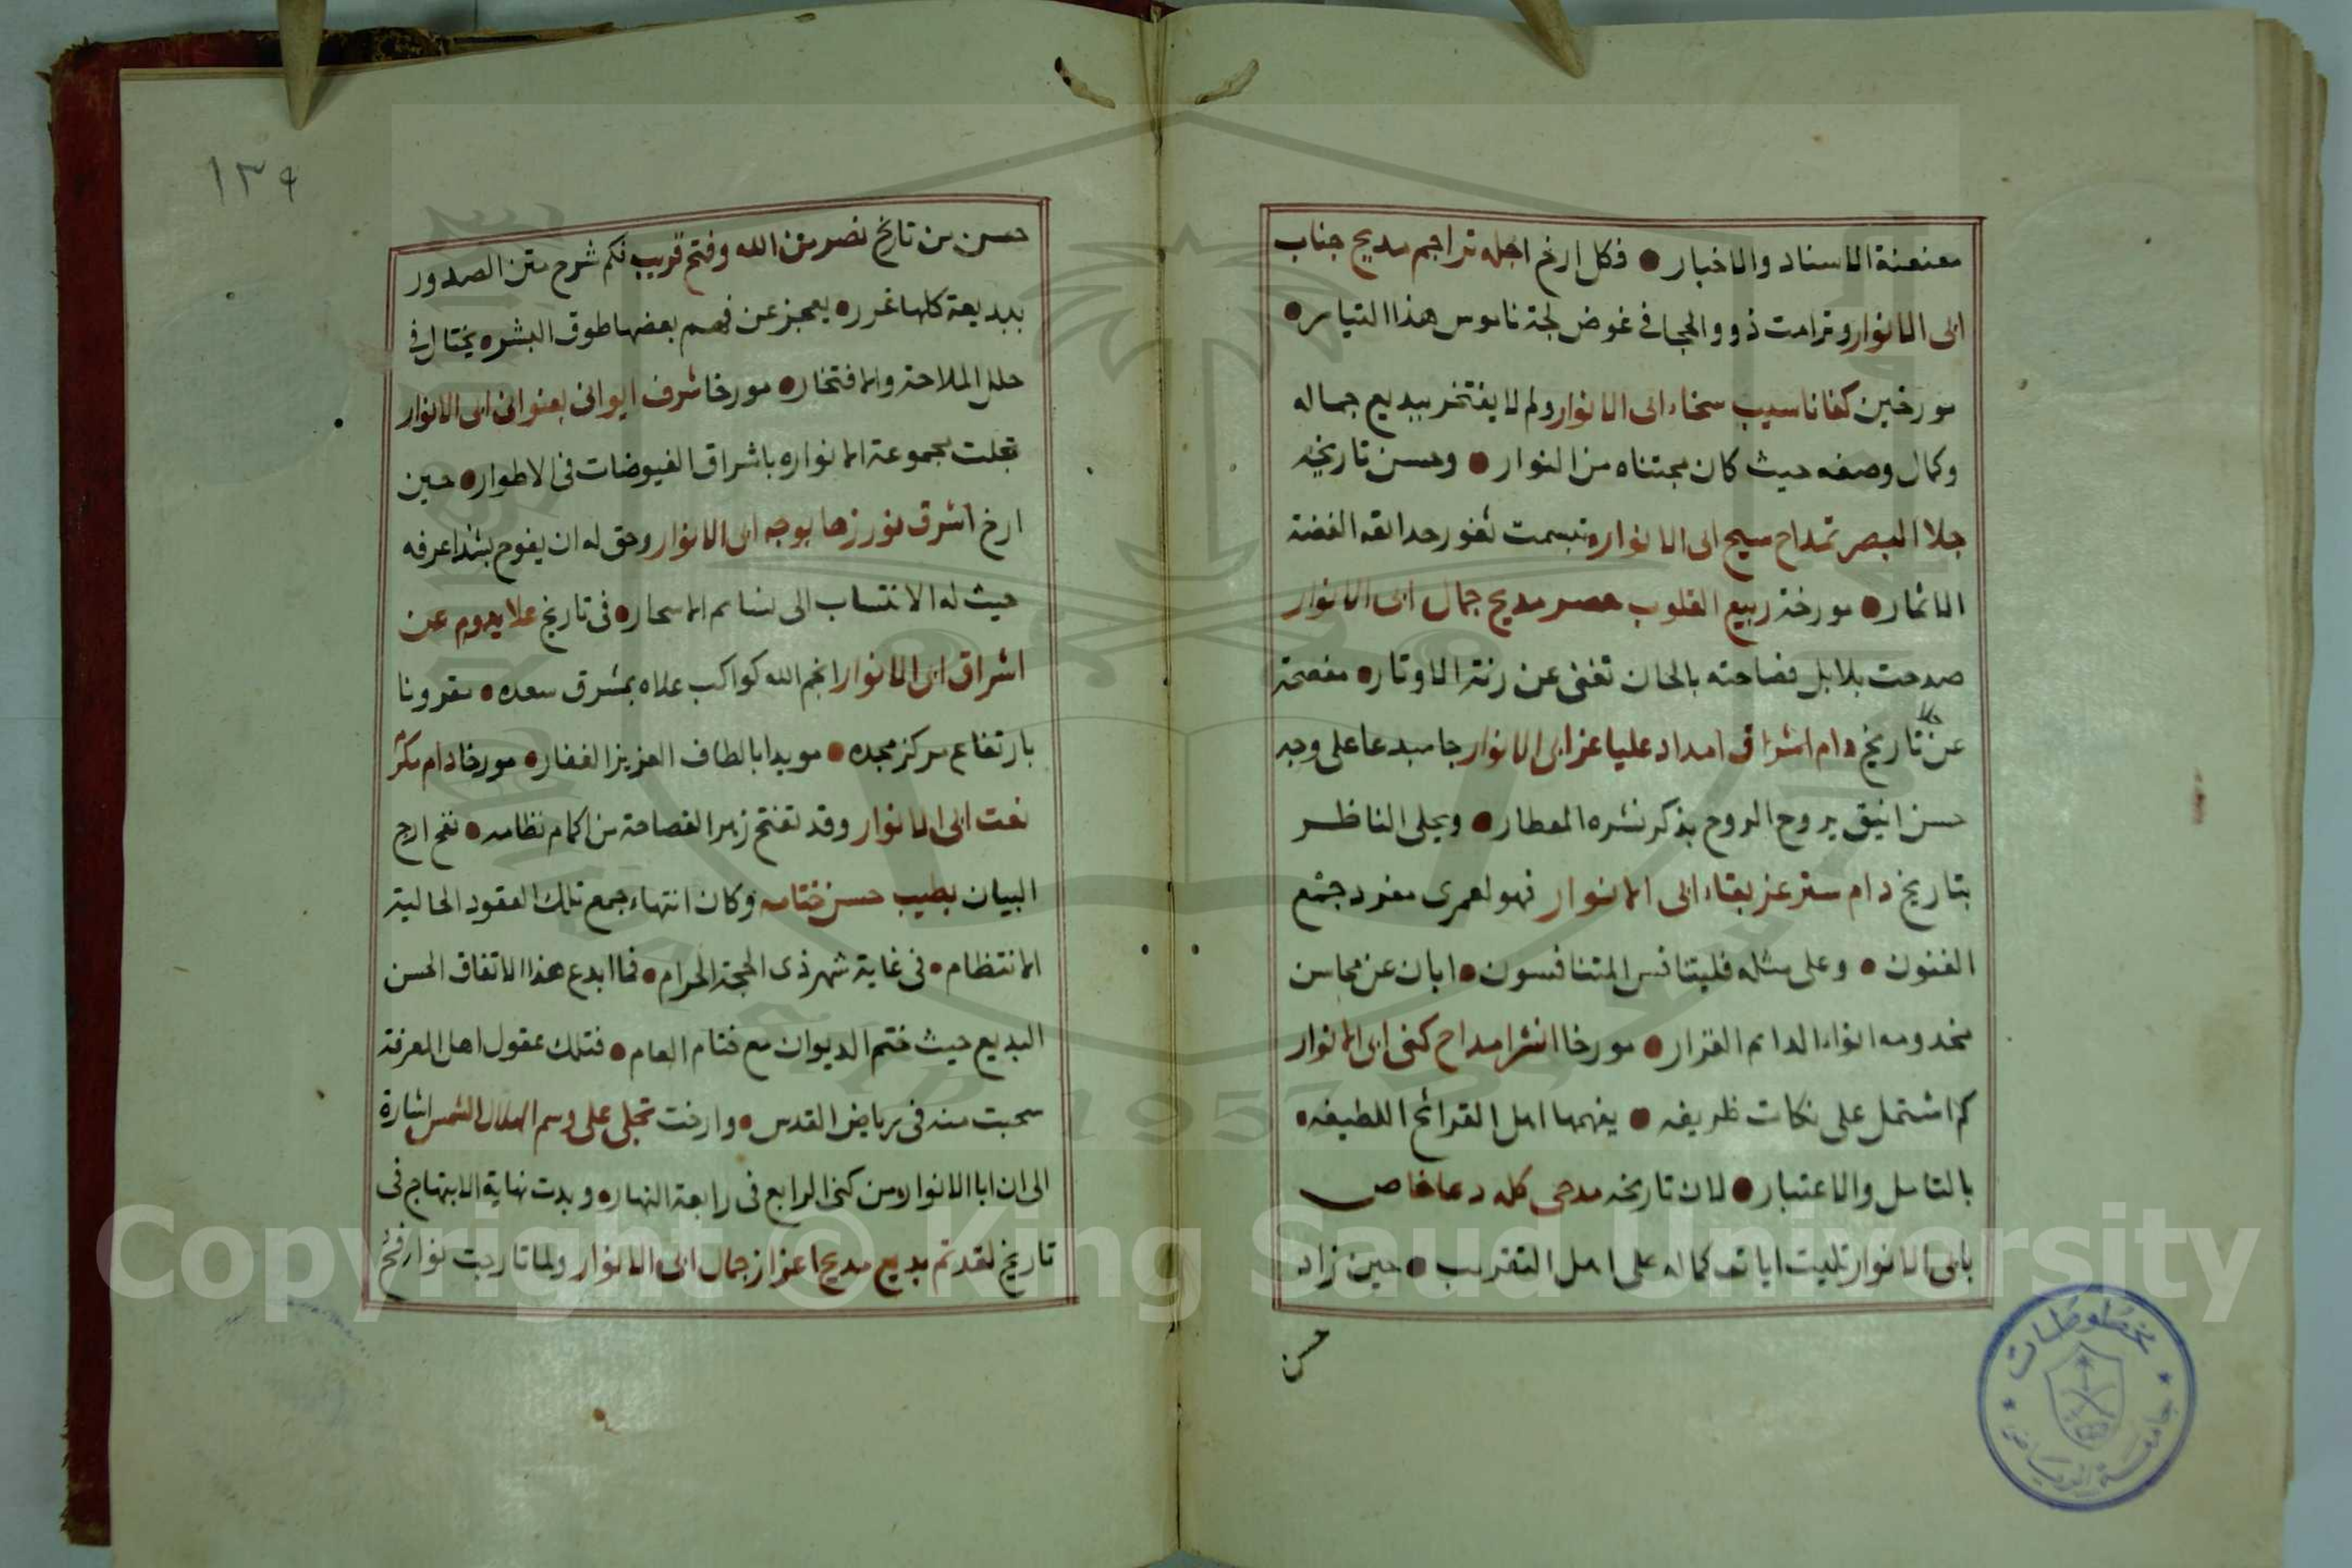 معنعنة الاسناد والاخبار ● فكل ارخ اجله تراجم مديح جناب
ابى الانوار وترامت ذوو الحجا فى غوض لجة ناموس هذا التيار ●
مورخين كفانا سيب سخاء ابى الانوار ولم لا يفتخر ببديع جماله
وكمال وصفه حيث كان مجتناه من النوار ● وحسن تاريخه
جلا البصر تمداح مسيح ابى الانوار ● تبسمت ثغور حدائقه الغضة
الاثمار ● مورخة ربيع القلوب حصر مديح جمال ابى الانوار
صدحت بلابل فصاحته بالحان تغنى عن رنة الاوتار ● مفصحة
عن تاريخ دام اشراق امداد عليا عز ابى الانوار جا مبدعا على وجه
حسن انيق يروح الروح بذكر نشره المعطار ● ويجلى الناظر
بتاريخ دام ستر عز بقاء ابى الانوار فهو لعمرى مفرد جمع
الفنون ● وعلى مثله فليتنافس المتنافسون ● ابان عن محاسن
مخدومه انواء الدائم الغزار ● مورخا انشر امداح كنى ابى الانوار
كم اشتمل على نكات ظريفه ● يفهمها اهل القرائح اللطيفه ●
بالتامل والاعتبار ● لان تاريخه مدحى كله دعا خاص
بابى الانوار تليت اياته كماله على اهل التقريب ● حين زاد
حسن
١٣٩
حسن من تاريخ نصر من الله وفتح قريب فكم شرح متن الصدور
ببديعة كلها غرر ● يعجز عن فهم بعضها طوق البشر ● يختال فى
حلل الملاحة والافتخار ● مورخا شرف ايوانى بعنوانى ابى الانوار
تجلت مجموعة الانوار ● باشراق الفيوضات فى الاطوار ● حين
ارخ اشرق نور زها بوجه ابى الانوار وحق له ان يفوح بشذا عرفه
حيث له الانتساب الى نسائم الاسحار ● فى تاريخ علا يدوم عن
اشراق ابى الانوار انجم الله كواكب علاه بمشرق سعده ● مقرونا
بارتفاع مركز مجده ● مويدا بالطاف العزيز الغفار ● مورخا دام مكثر
نعت ابى الانوار وقد تفتح زهر الفصاحة من اكمام نظامه ● نفح ارج
البيان بطيب حسن ختامه وكان انتهاء جمع تلك العقود الحالية
الانتظام ● فى غاية شهر ذى الحجة الحرام ● فما ابدع هذا الاتفاق الحسن
البديع حيث ختم الديوان مع ختام العام ● فتلك عقول اهل المعرفة
سحبت منه فى رياض القدس ● وارخت تجلى على وسم الهلال الشمس اشارة
الى ان ابا الانوار ● من كنى الرابع فى رابعة النهار ● وبدت نهاية الابتهاج فى
تاريخ لقد تم بديع مديح اعزاز جمال ابى الانوار ولما تارجت نوافح
Copyright © King Saud University
1957
مخطوطات
جامعة الرياض